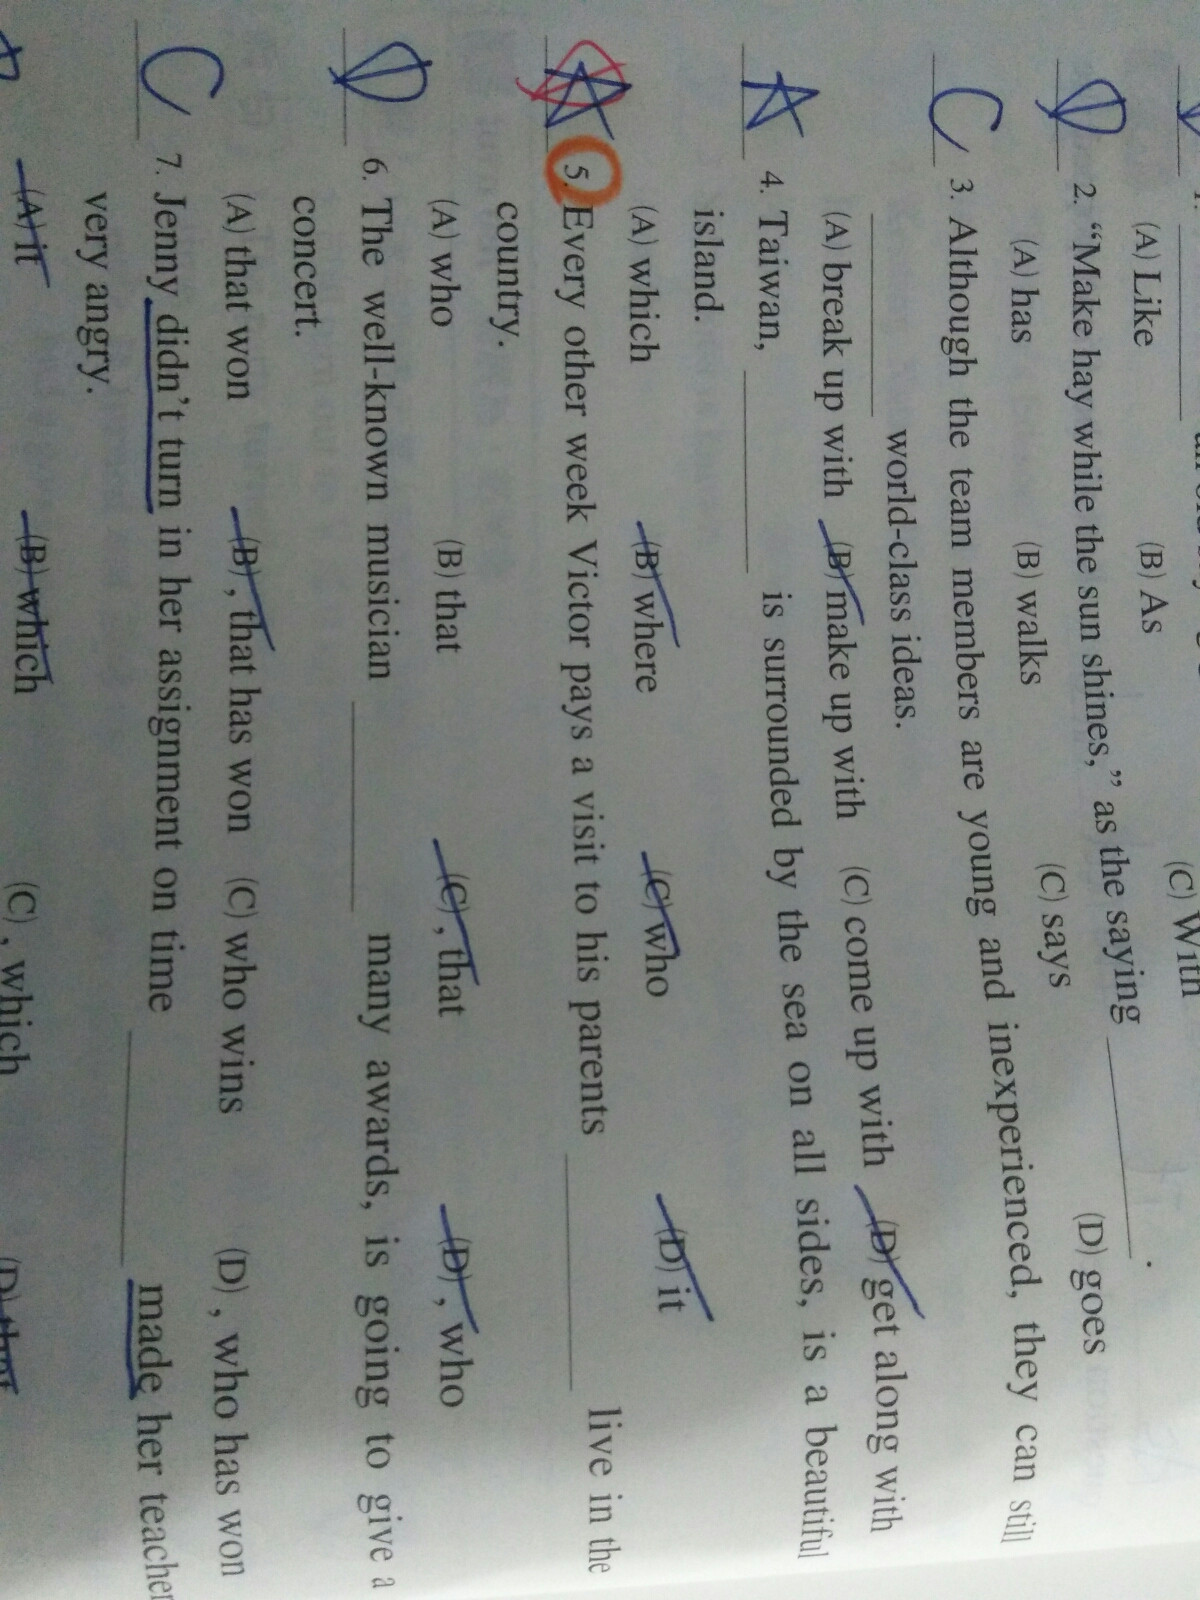 1.
(A) Like (B) As (C) With
D 2. “Make hay while the sun shines,” as the saying ________.
(A) has (B) walks (C) says (D) goes
C 3. Although the team members are young and inexperienced, they can still
________ world-class ideas.
(A) break up with (B) make up with (C) come up with (D) get along with
A 4. Taiwan, ________ is surrounded by the sea on all sides, is a beautiful
island.
(A) which (B) where (C) who (D) it
A 5. Every other week Victor pays a visit to his parents ________ live in the
country.
(A) who (B) that (C) , that (D) , who
D 6. The well-known musician ________ many awards, is going to give a
concert.
(A) that won (B) , that has won (C) who wins (D) , who has won
C 7. Jenny didn’t turn in her assignment on time ________ made her teacher
very angry.
(A) it (B) which (C) , which (D) that